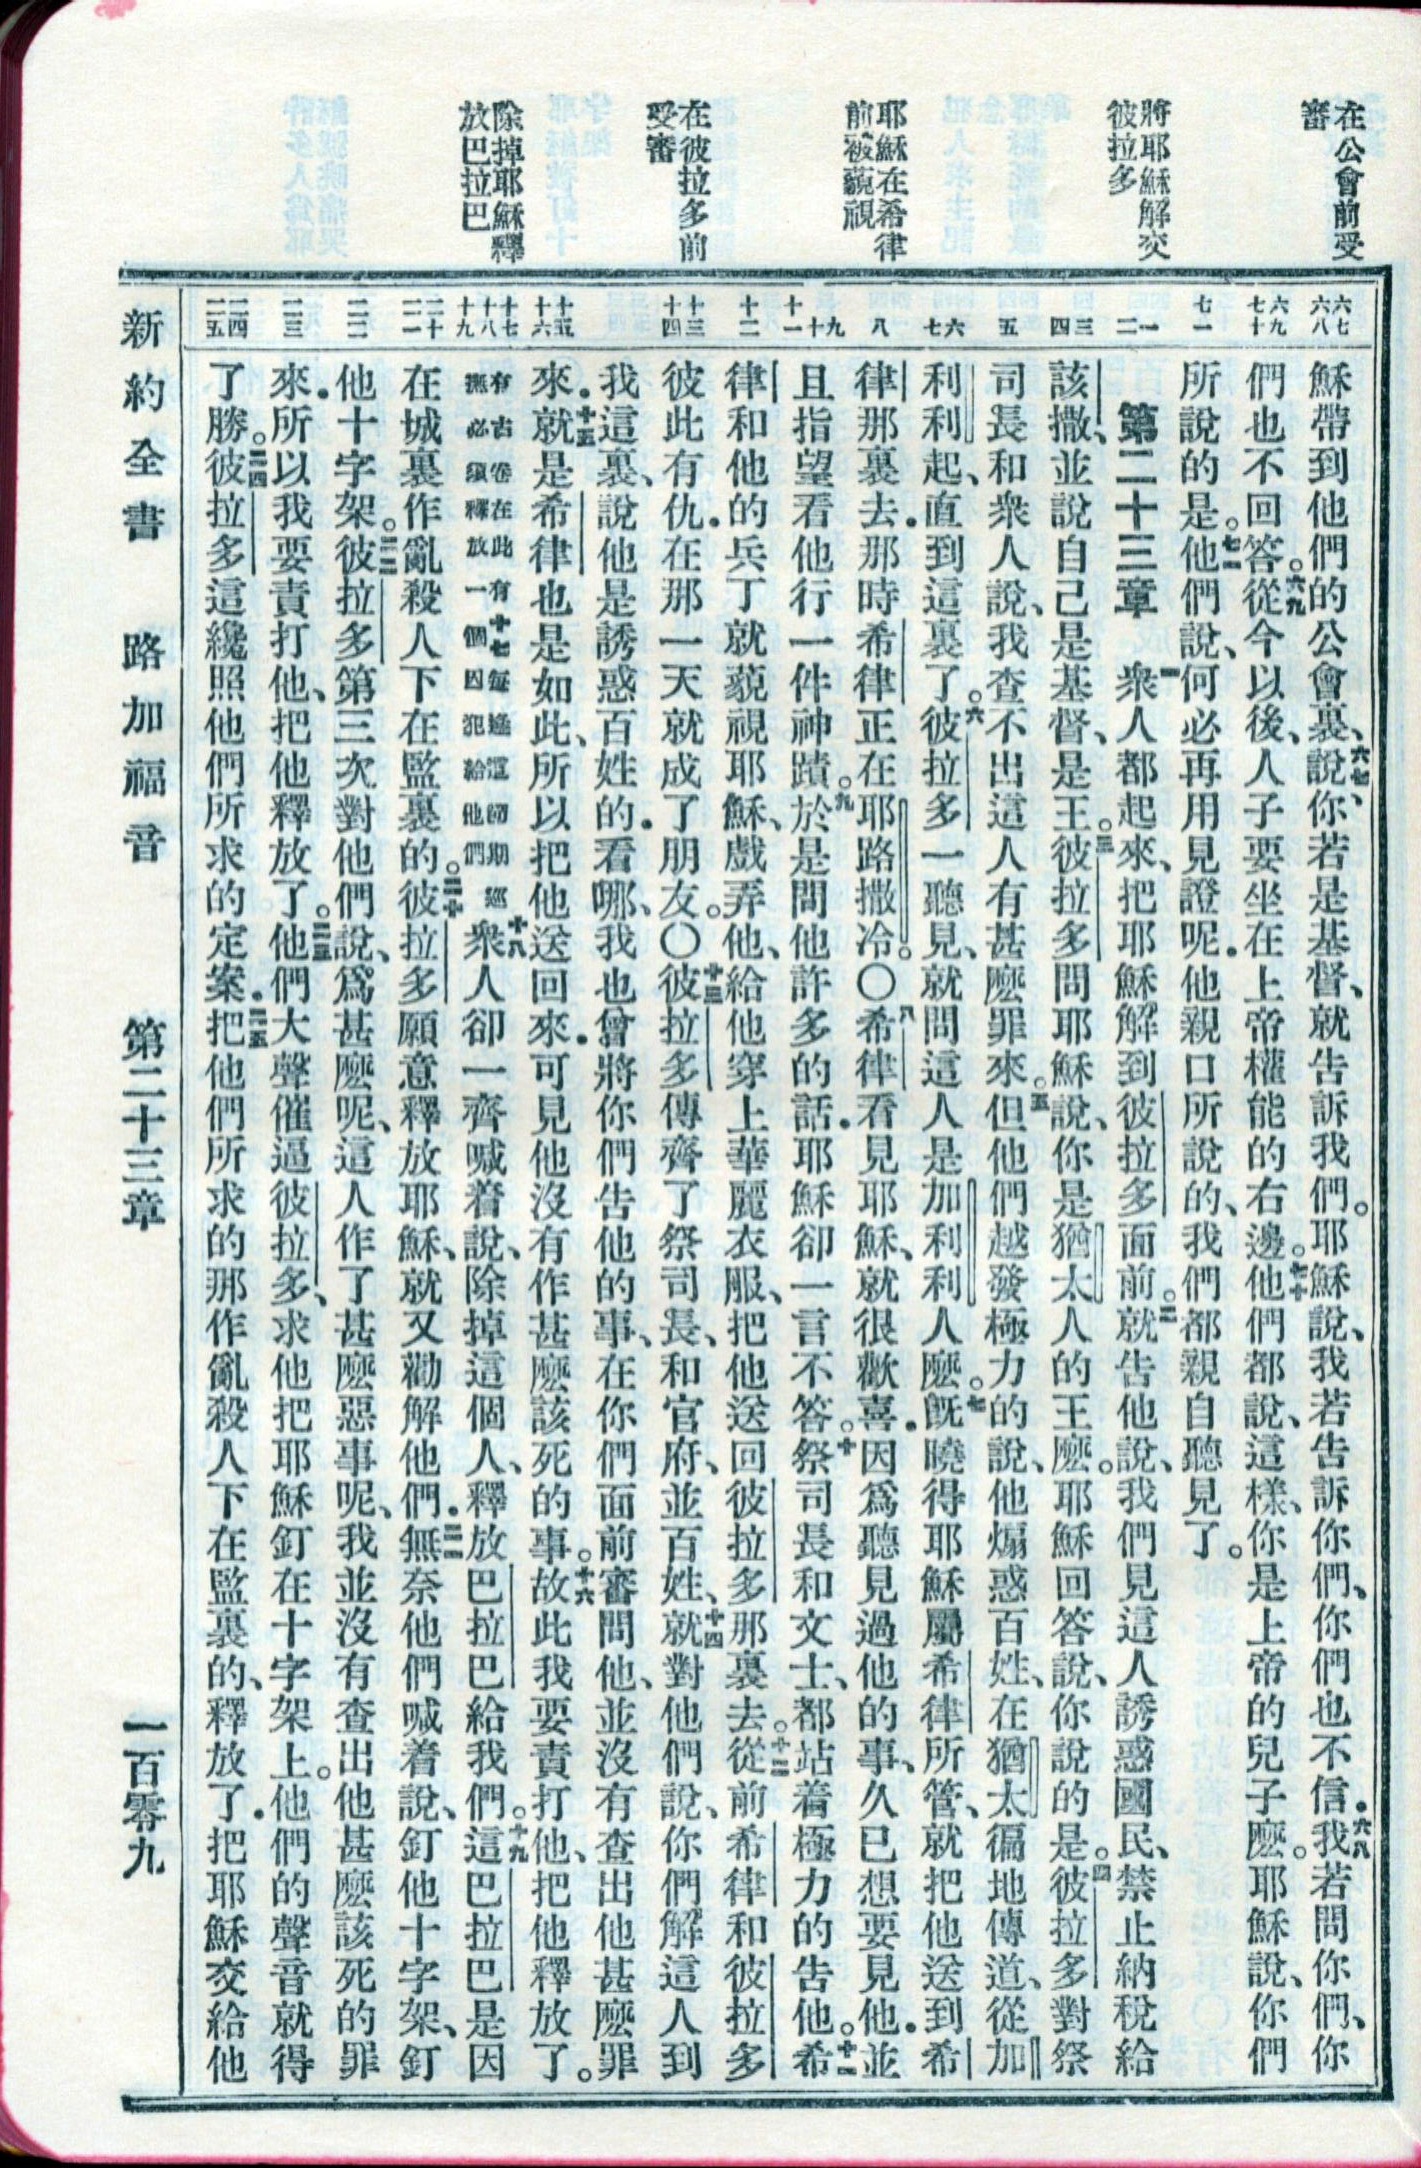 在公會前受
審
將耶穌解交
彼拉多
耶穌在希律
前被藐視
在彼拉多前
受審
除掉耶穌釋
放巴拉巴
六七
六八
六九
七十
七一
一
二
三
四
五
六
七
八
九
十
十一
十二
十三
十四
十五
十六
十七
十八
十九
二十
二一
二二
二三
二四
二五
穌帶到他們的公會裏、六七說、你若是基督、就告訴我們。耶穌說、我若告訴你們、你們也不信．六八我若問你們、你
們也不回答。六九從今以後、人子要坐在上帝權能的右邊。七十他們都說、這樣、你是上帝的兒子麼。耶穌說、你們
所說的是。七一他們說、何必再用見證呢．他親口所說的、我們都親自聽見了。
第二十三章 一衆人都起來、把耶穌解到彼拉多面前。二就告他說、我們見這人誘惑國民、禁止納稅給
該撒、並說自己是基督、是王。三彼拉多問耶穌說、你是猶太人的王麼。耶穌回答說、你說的是。四彼拉多對祭
司長和衆人說、我查不出這人有甚麼罪來。五但他們越發極力的說、他煽惑百姓、在猶太徧地傳道、從加
利利起、直到這裏了。六彼拉多一聽見、就問這人是加利利人麼。七旣曉得耶穌屬希律所管、就把他送到希
律那裏去．那時希律正在耶路撒冷。〇八希律看見耶穌、就很歡喜．因爲聽見過他的事、久已想要見他．並
且指望看他行一件神蹟。九於是問他許多的話．耶穌卻一言不答。十祭司長和文士、都站着極力的告他。十一希
律和他的兵丁就藐視耶穌、戲弄他、給他穿上華麗衣服、把他送回彼拉多那裏去。十二從前希律和彼拉多
彼此有仇．在那一天就成了朋友。〇十三彼拉多傳齊了祭司長、和官府、並百姓、十四就對他們說、你們解這人到
我這裏、說他是誘惑百姓的．看哪、我也曾將你們告他的事、在你們面前審問他、並沒有查出他甚麼罪
來．十五就是希律也是如此、所以把他送回來．可見他沒有作甚麼該死的事。十六故此我要責打他、把他釋放了。
有古卷在此有十七每逢這節期巡
撫必須釋放一個囚犯給他們
十八衆人卻一齊喊着說、除掉這個人、釋放巴拉巴給我們。十九這巴拉巴是因
在城裏作亂殺人下在監裏的。二十彼拉多願意釋放耶穌、就又勸解他們．二一無奈他們喊着說、釘他十字架、釘
他十字架。二二彼拉多第三次對他們說、爲甚麼呢、這人作了甚麼惡事呢、我並沒有查出他甚麼該死的罪
來．所以我要責打他、把他釋放了。二三他們大聲催逼彼拉多、求他把耶穌釘在十字架上。他們的聲音就得
了勝。二四彼拉多這纔照他們所求的定案．二五把他們所求的那作亂殺人下在監裏的、釋放了．把耶穌交給他
新約全書 路加福音 第二十三章 一百零九